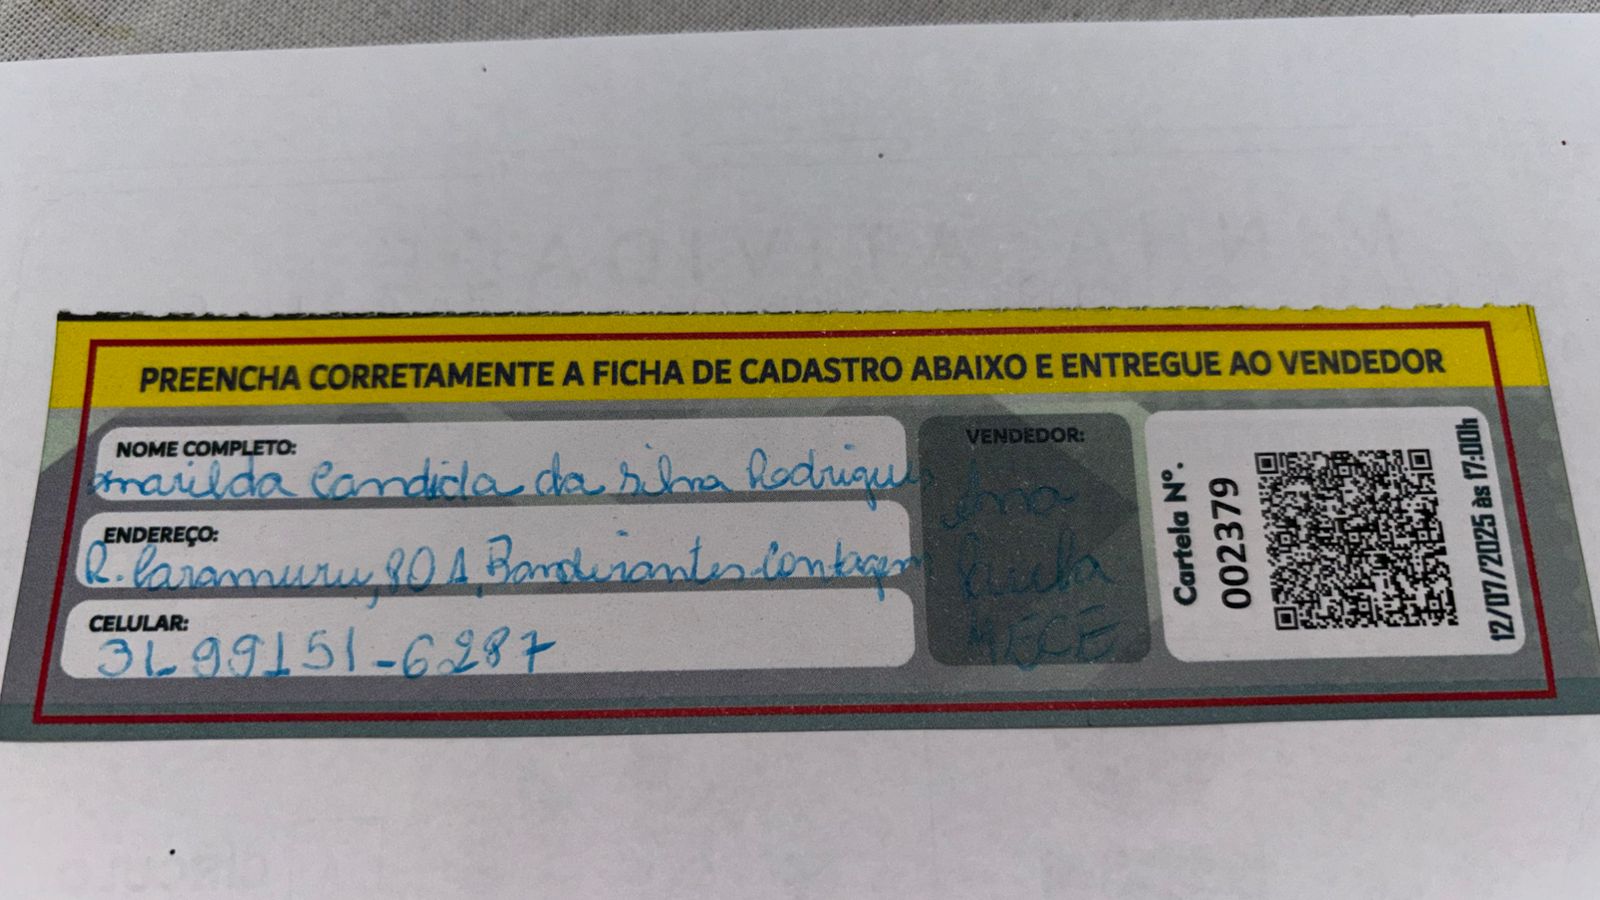 PREENCHA CORRETAMENTE A FICHA DE CADASTRO ABAIXO E ENTREGUE AO VENDEDOR
NOME COMPLETO:
Marilda Candida da Silva Rodrigues
ENDEREÇO:
R. Caramuru, 80 A, Bandeirantes - Contagem
CELULAR:
31 99151-6287
VENDEDOR:
Ana
Paula
MECE
Cartela Nº.
002379
12/07/2025 às 17:00h